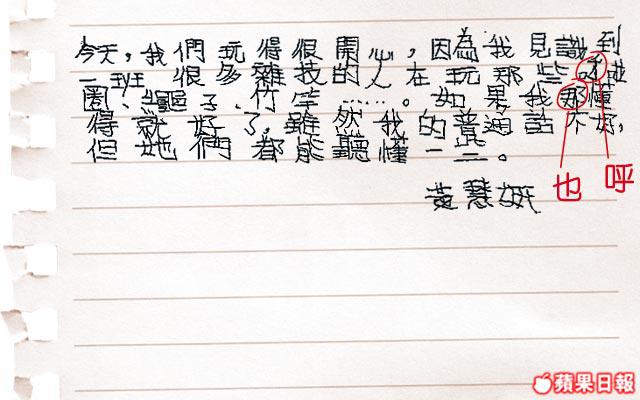 今天，我們玩得很開心，因為我見識到
一班很多雜技的人在玩那些啦
圈、子、竹竿……。如果我那懂
得就好了，雖然我的普通話不好，
但她們都能聽懂一二。
黃慧妍
也 呼
蘋果日報